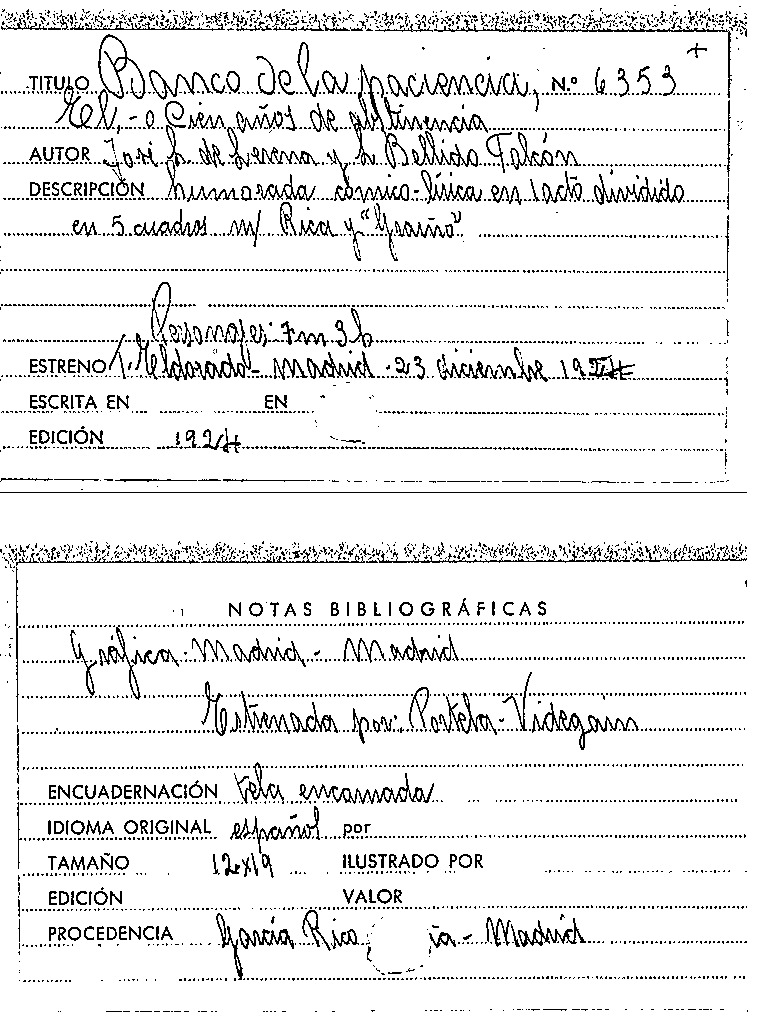 +
TITULO Banco de la paciencia, N.º 6353
El, - o Cien años de abstinencia
AUTOR José L. de Lerena y L. Bellido Falcón
DESCRIPCIÓN humorada cómico-lírica en 1 acto dividido
en 5 cuadros m/ Rica y "Graiño".
Personajes: 7m 3h
ESTRENO T. Eldorado - Madrid - 23 diciembre 1924
ESCRITA EN EN
EDICIÓN 1924
NOTAS BIBLIOGRÁFICAS
Gráfica-Madrid - Madrid
Estrenada por: Portela-Videgain
ENCUADERNACIÓN tela encarnada
IDIOMA ORIGINAL español por
TAMAÑO 12x19 ILUSTRADO POR
EDICIÓN VALOR
PROCEDENCIA García Rico - Madrid